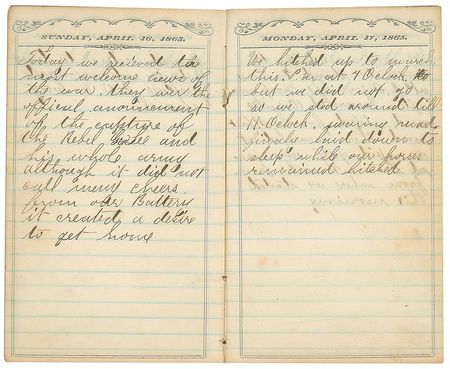 SUNDAY, APRIL 16, 1865.
Today we received the
most welcome news of
the war. they wer the
oficial anouncement
of the capture of
the Rebel and
his whole army
although it did not
call meny cheers.
from our Battery
it created a desire
to get home
MONDAY, APRIL 17, 1865.
We hitched up to march
this P.m at 4 Oclock
but we did not go
so we stod around till
11 Oclock.
finaly laid down to
sleep while our horses
remained hitched